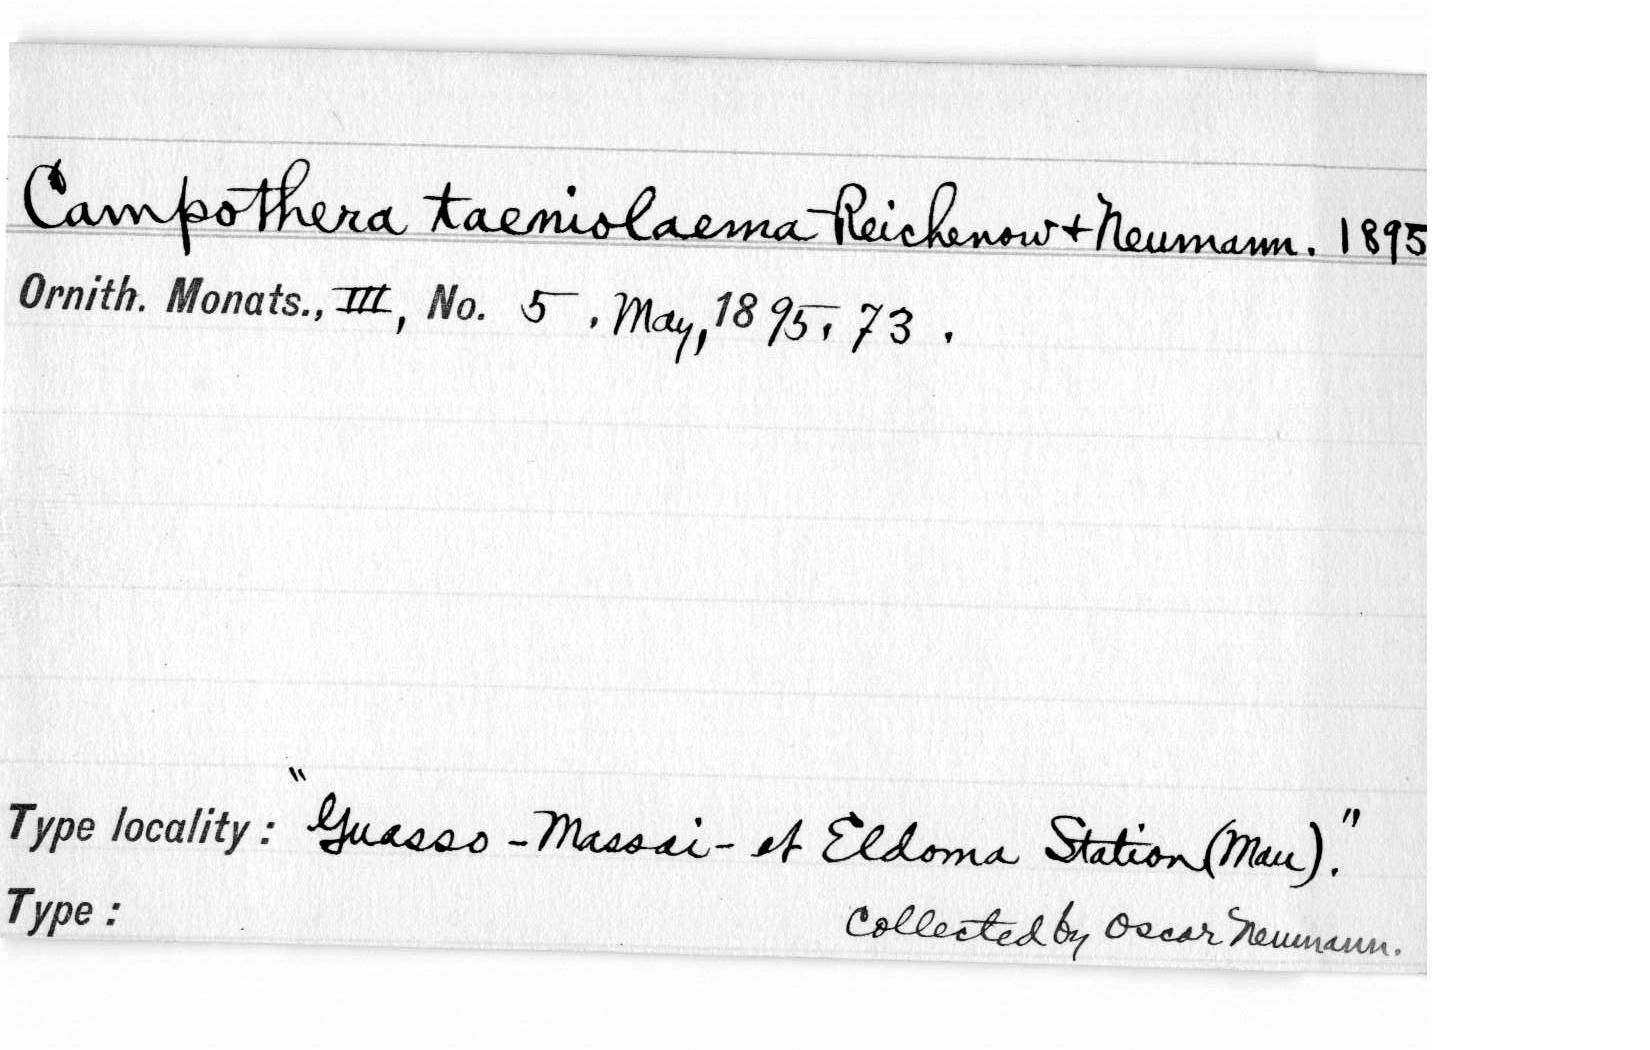 Campothera taeniolaema Reichenow + Neumann. 1895
Ornith. Monats., III, No. 5. May, 1895, 73.
Type locality: "Guasso-Massai- et Eldoma Station (Mau)."
Type: Collected by Oscar Neumann.